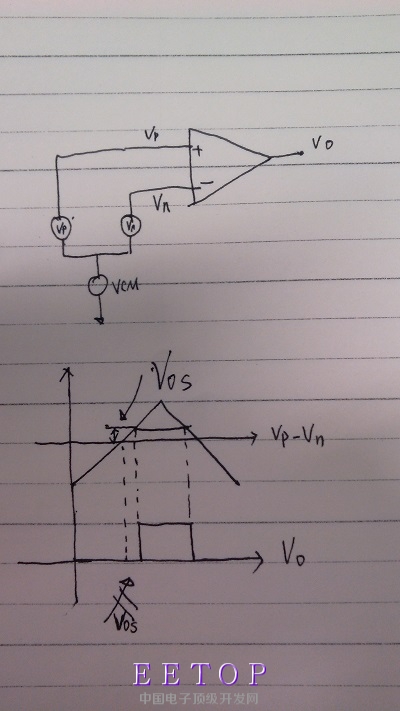 Vp
+
Vo
−
Vn
Vp
Vn
VCM
Vos
Vp-Vn
Vo
Vos
EETOP
中国电子顶级开发网